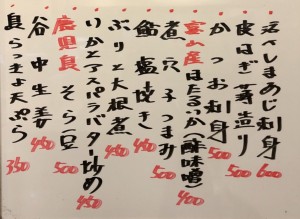 活〆しまあじ刺身 600
皮はぎ薄造り 500
かつお刺身 500
富山産ほたるいか(酢味噌) 400
煮穴子つまみ 500
鮎塩焼き 450
ぶりと大根煮 450
いかとアスパラバター炒め 450
鹿児島 そら豆 500
谷中生姜 450
島らっきょ天ぷら 350